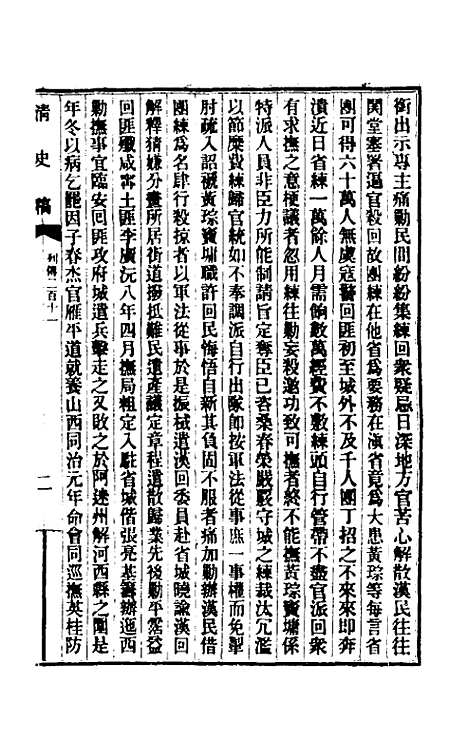 銜出示專主痛勦民間紛紛集練回衆疑忌日深地方官苦心解散漢民往往
閧堂塞署逼官殺回故團練在他省爲要務在滇省竟爲大患黃琮等每言省
團可得六十萬人無虞寇警回匪初至城外不及千人團丁招之不來來即奔
潰近日省練一萬餘人月需餉數萬經費不敷練頭自行管帶不盡官派回衆
有求撫之意梗議者忽用練往勦妄殺邀功致可撫者終不能撫黃琮竇墉係
特派人員非臣力所能制請旨定奪臣已咨桑春榮嚴駁守城之練裁汰冗濫
以節糜費練歸官統如不奉調派自行出隊卽按軍法從事庶一事權而免掣
肘疏入詔褫黃琮竇墉職許回民悔悟自新其負固不服者痛加勦辦漢民借
團練爲名肆行殺掠者以軍法從事於是振棫遣漢回委員赴省城曉諭漢回
解釋猜嫌分畫所居街道撥抵難民遺產議定章程遣散歸業先後勦平霑益
回匪殲咸甯土匪李廣沅八年四月撫局粗定入駐省城偕張亮基籌辦迤西
勦撫事宜臨安回匪攻府城遣兵擊走之又敗之於阿迷州解河西縣之圍是
年冬以病乞罷因子春杰官雁平道就養山西同治元年命會同巡撫英桂防
清史稿
列傳二百十一
二